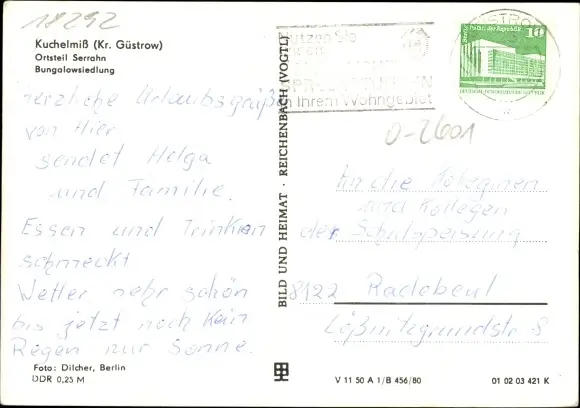 18292
Kuchelmiß (Kr. Güstrow)
Ortsteil Serrahn
Bungalowsiedlung
herzliche Urlaubsgrüße
von Hier
sendet Helga
und Familie.
Essen und Trinken
schmeckt
Wetter sehr schön
bis jetzt noch kein
Regen nur Sonne.
Foto: Dilcher, Berlin
DDR 0,25 M
BILD UND HEIMAT · REICHENBACH (VOGTL)
Nutzen Sie
in Ihrem Wohngebiet
GÜSTROW
Berlin, Palast der Republik
10
O-2601
An die Kolleginen
und Kollegen
der Schulspeisung
8122 Radebeul
Lößnitzgrundstr 8
V 11 50 A 1/B 456/80
01 02 03 421 K